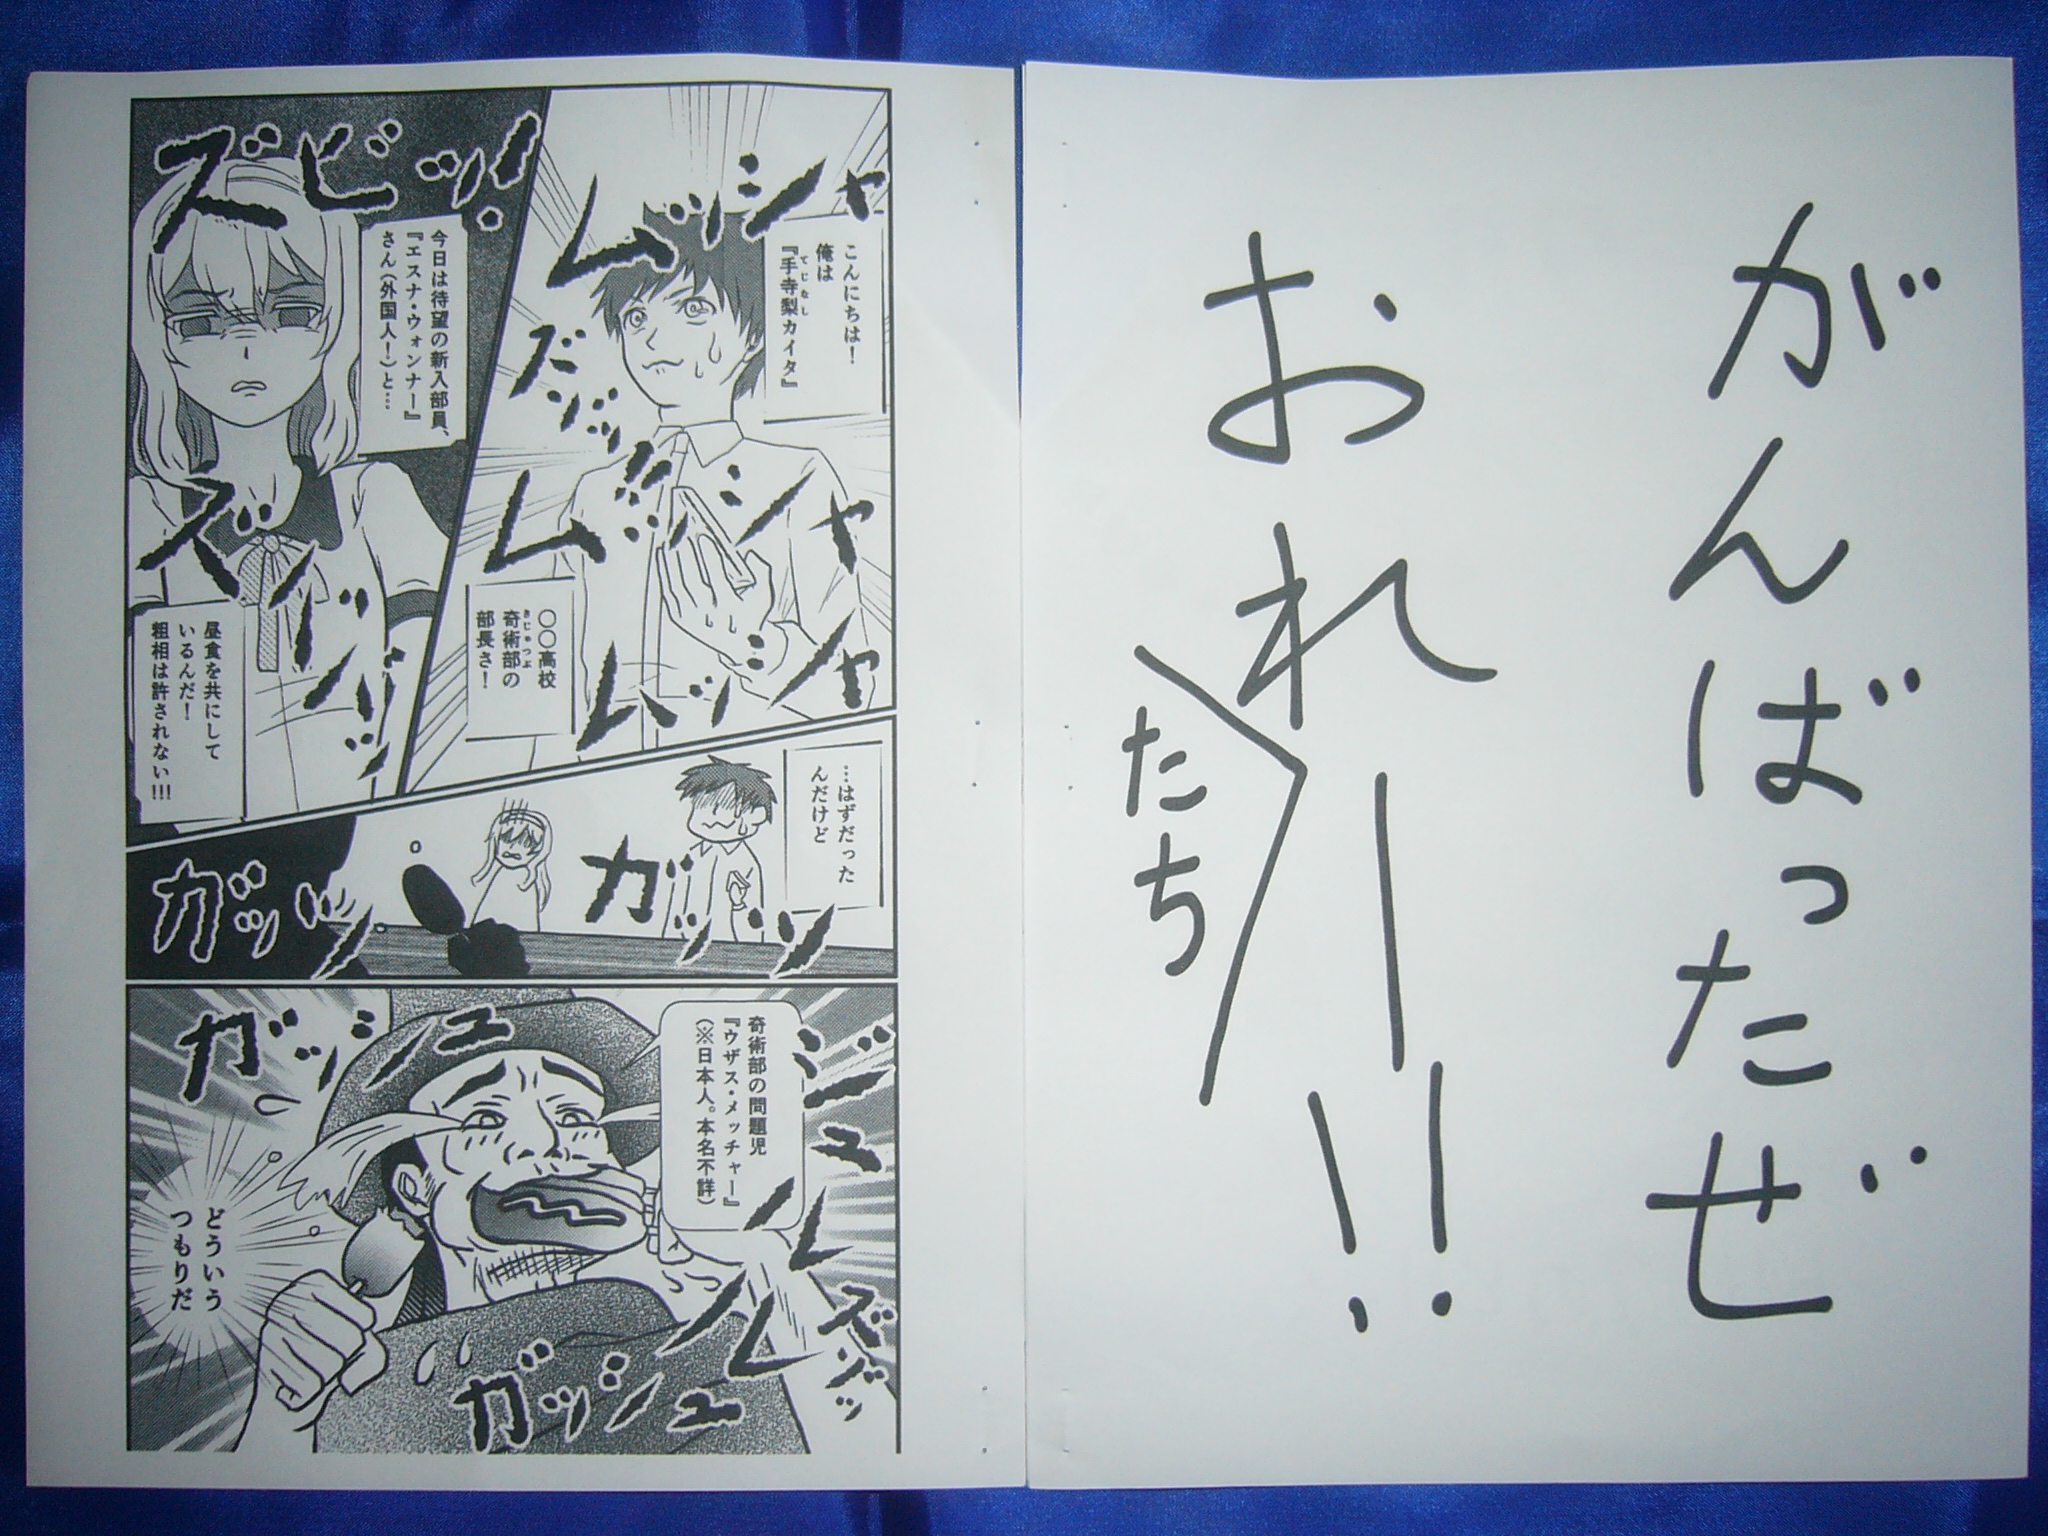 がんばったぜ
おれー!!
たち
ムッシャ
こんにちは!
俺は
『手寺梨カイタ』
てじなし
ムッシャ
〇〇高校
奇術部の
きじゅつぶ
部長さ!
ムッシャ
ズビッ!
今日は待望の新入部員、
『エスナ・ウォンナー』
さん(外国人!)と…
昼食を共にして
いるんだ!
粗相は許されない!!!
…はずだった
んだけど
ガッッ
ガッッ
奇術部の問題児
『ウザス・メッチャー』
(※日本人。本名不詳)
ガッシュ
ガッシュ
どういう
つもりだ